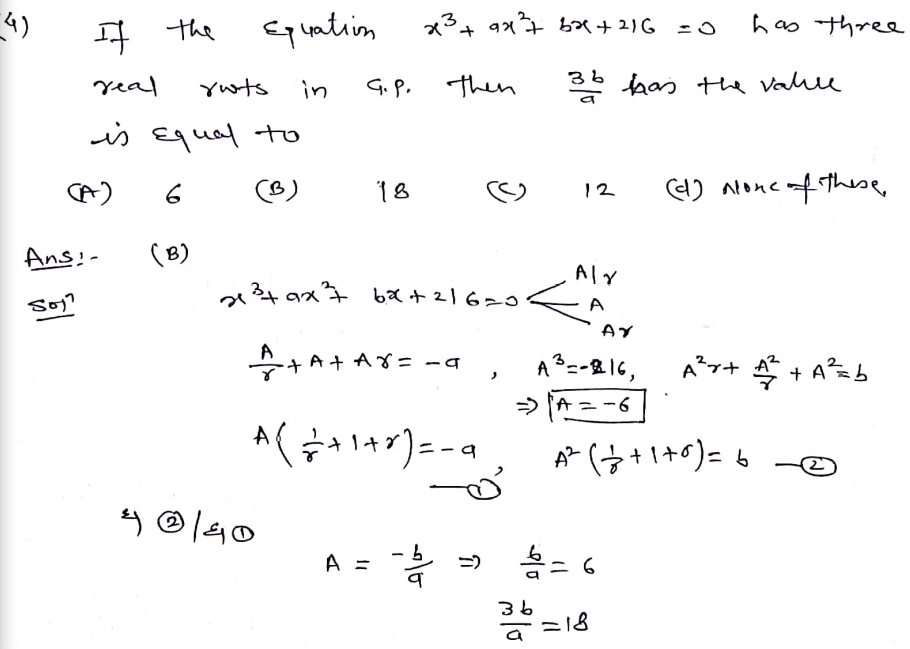 (4) If the Equation x³ + ax² + bx + 216 = 0 has three
real roots in G.P. then 3b/a has the value
is Equal to
(A) 6 (B) 18 (C) 12 (d) None of these
Ans:- (B)
Solⁿ x³ + ax² + bx + 216 = 0 < A/r
A
Ar
A/r + A + Ar = -a , A³ = -216, A²r + A²/r + A² = b
⇒ A = -6
A(1/r + 1 + r) = -a —①, A²(1/r + 1 + r) = b —②
Eq ② / Eq ①
A = -b/a ⇒ b/a = 6
3b/a = 18